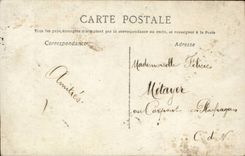 CARTE POSTALE
Tous les pays étrangers n'acceptent pas la correspondance au recto, se renseigner à la Poste
Correspondance
Adresse
Amitiés
Mademoiselle
Métayer
au
C. d. N.